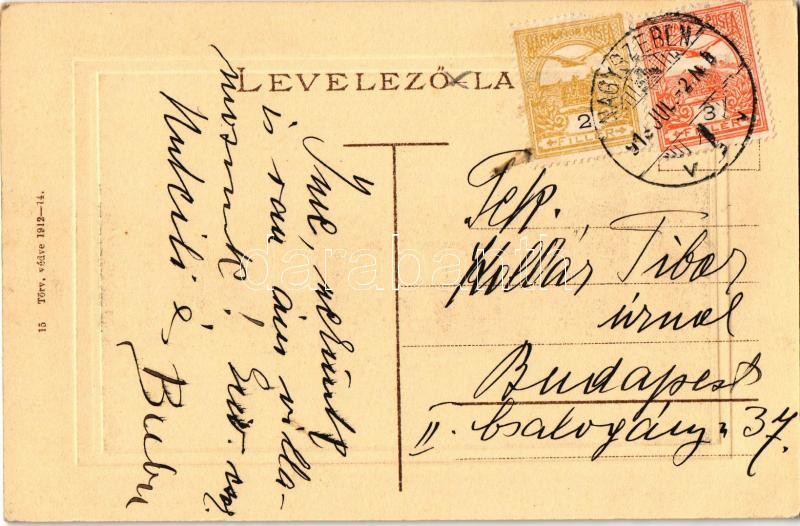 LEVELEZŐ-LA
MAGYAR KIR. POSTA
2
FILLÉR
MAGYAR KIR. POSTA
3
FILLÉR
NAGYSZEBEN
JUL.
V
15 Törv. védve 1912—14.
Íme, nekünk
is van ám villa-
mosunk!
és
Tek.
Kollár Tibor
úrnak
Budapest
II. Csalogány u 37.
darabanth